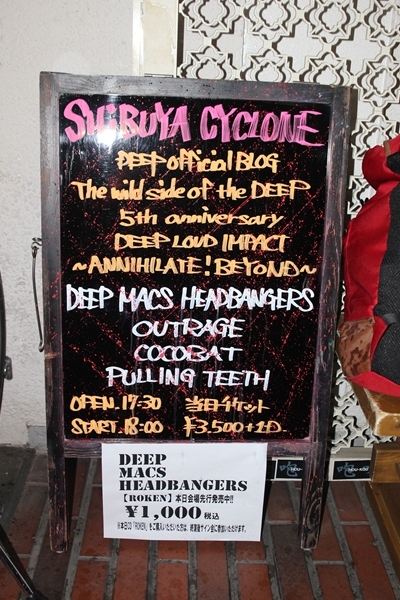 SHiBUYA CYCLONE
DEEP official BLOG
The wild side of the DEEP
5th anniversary
DEEP LOUD IMPACT
~ANNIHILATE! BEYOND~
DEEP MACS HEADBANGERS
OUTRAGE
COCOBAT
PULLING TEETH
OPEN. 17:30 当日チケット
START. 18:00 ¥3,500+1D.
DEEP
MACS
HEADBANGERS
【ROKEN】本日会場先行発売中!!
¥1,000 税込
※本日CD「ROKEN」をご購入いただいた方は、終演後サイン会に参加いただけます。